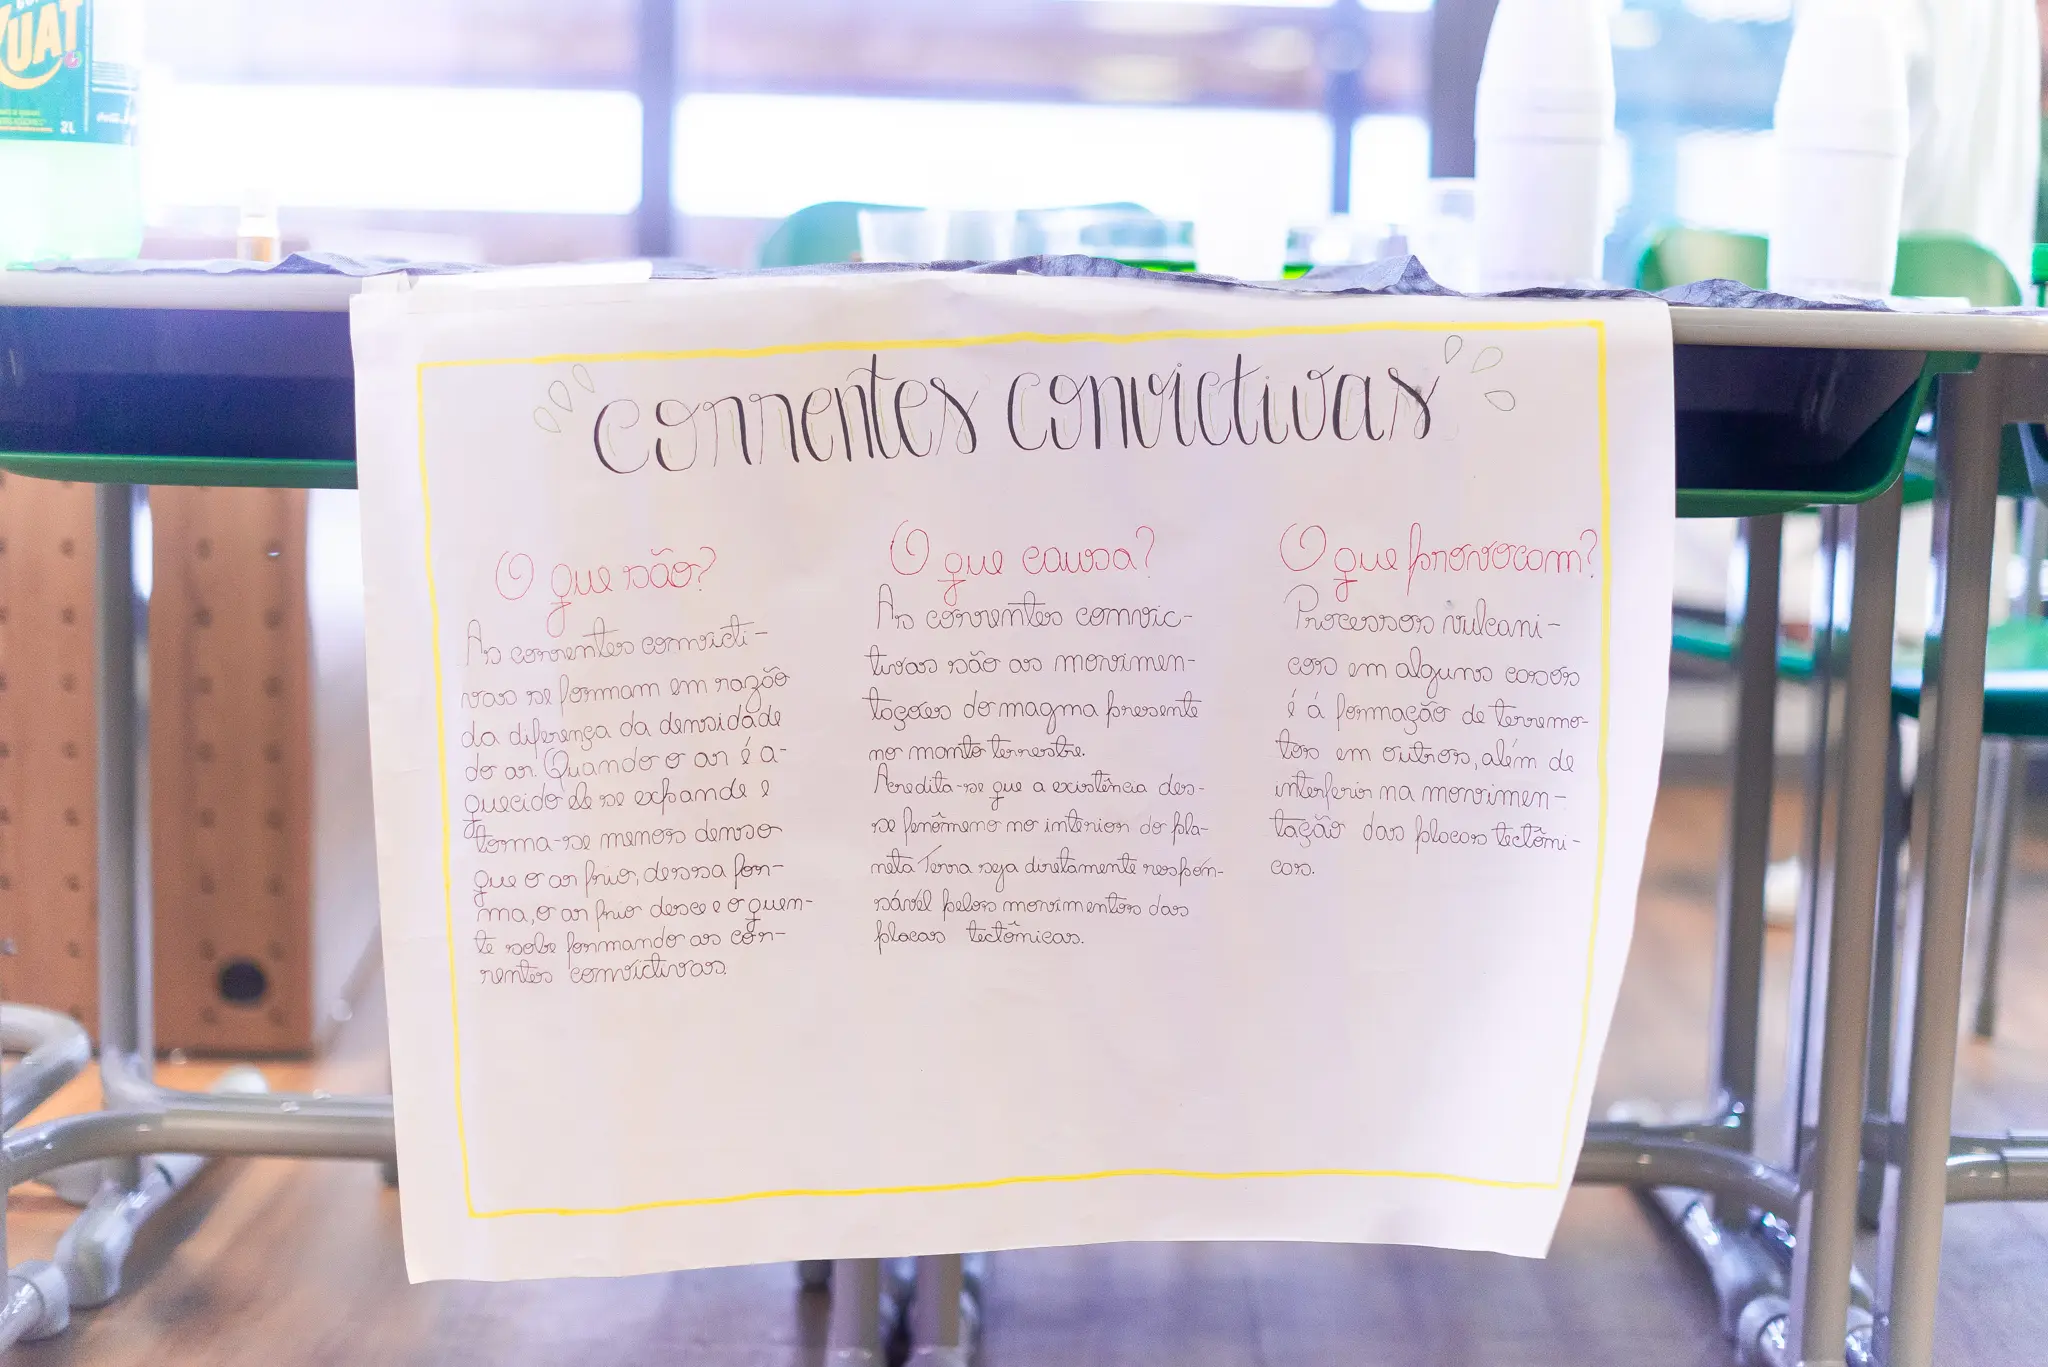 KUAT
2L
Correntes convictivas
O que são?
As correntes convicti-
vas se formam em razão
da diferença da densidade
do ar. Quando o ar é a-
quecido ele se expande e
torma-se menos denso
que o ar frio, dessa for-
ma, o ar frio desce e o quen-
te sobe formando as cor-
rentes convictivas.
O que causa?
As correntes convic-
tivas são as movimen-
tações do magma presente
no manto terrestre.
Acredita-se que a existência des-
se fenômeno no interior do pla-
neta Terra seja diretamente respon-
sável pelos movimentos das
placas tectônicas.
O que provocam?
Processos vulcani-
cos em alguns casos
é á formação de terremo-
tos em outros, além de
interferir na movimen-
tação das placas tectôni-
cas.